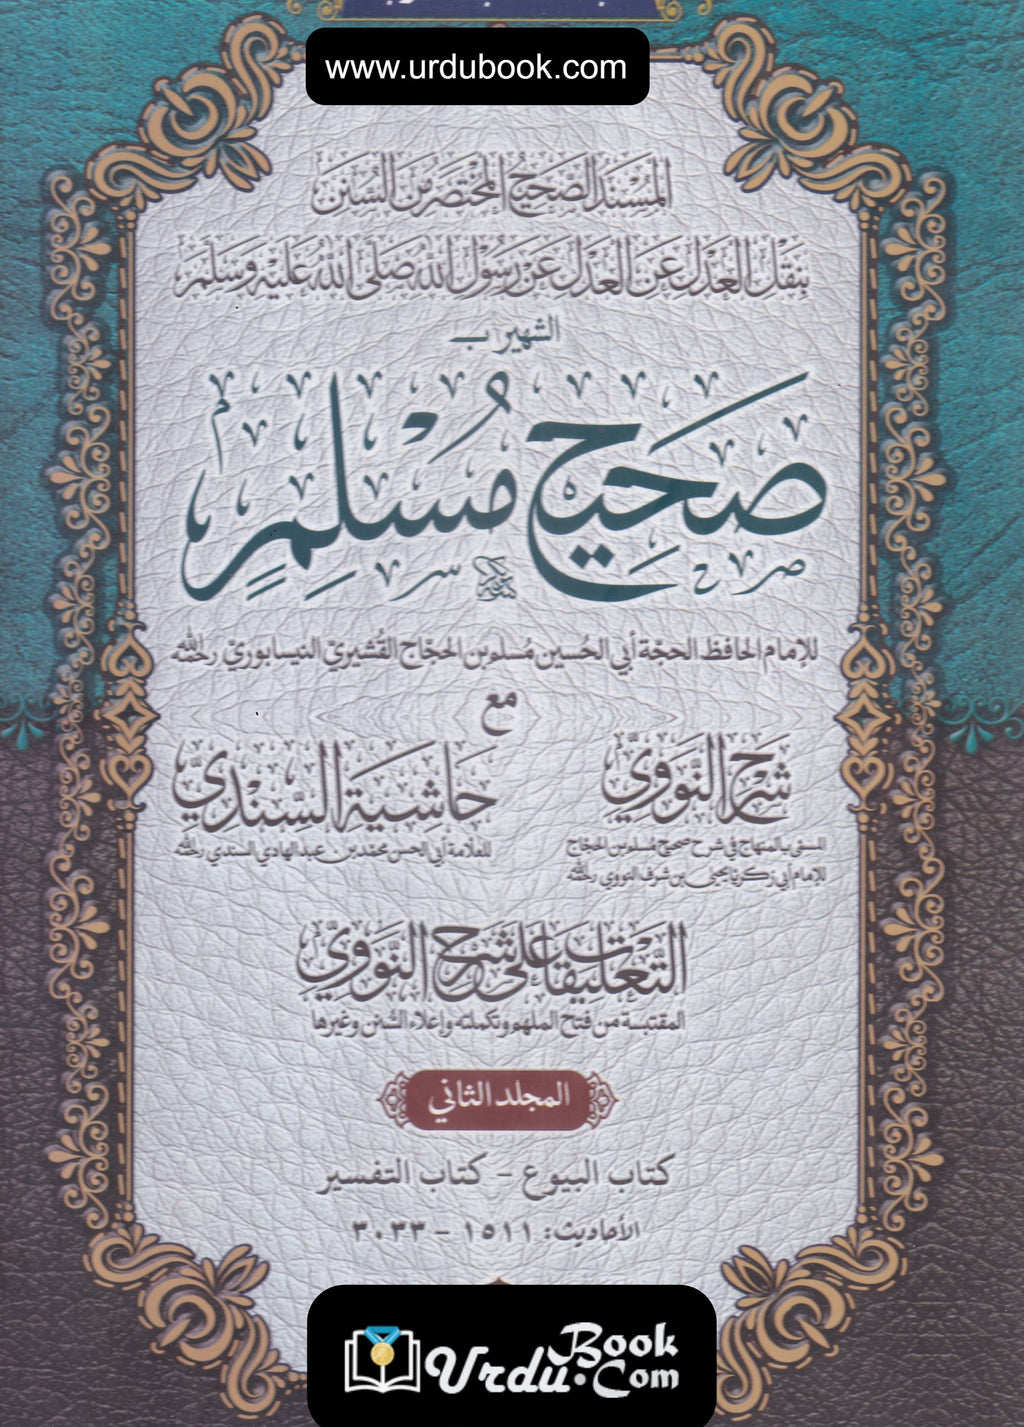 www.urdubook.com
المسند الصحيح المختصر من السنن
بنقل العدل عن العدل عن رسول الله صلى الله عليه وسلم
الشهير ب
صَحِيح مُسْلِم
للإمام الحافظ الحجة أبي الحسين مسلم بن الحجاج القشيري النيسابوري رحمه الله
مع
شرح النووي
المسمى بالمنهاج في شرح صحيح مسلم بن الحجاج
للإمام أبي زكريا يحيى بن شرف النووي رحمه الله
حاشية السندي
للعلامة أبي الحسن محمد بن عبد الهادي السندي رحمه الله
التعليقات على شرح النووي
المقتبسة من فتح الملهم وتكملته وإعلاء السنن وغيرها
المجلد الثاني
كتاب البيوع - كتاب التفسير
الأحاديث: ١٥١١ - ٣٠٣٣
Urdu Book.Com